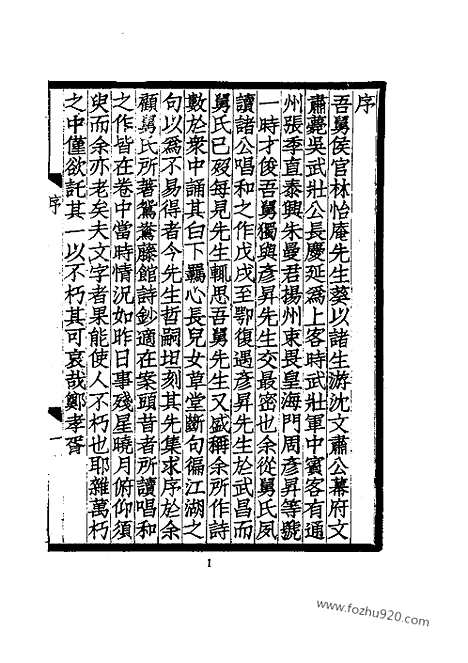 序
吾舅侯官林怡庵先生葵以諸生游沈文肅公幕府文
肅薨吳武壯公長慶延爲上客時武壯軍中賓客有通
州張季直泰興朱曼君揚州束畏皇海門周彥昇等號
一時才俊吾舅獨與彥昇先生交最密也余從舅氏夙
讀諸公唱和之作戊戌至鄂復遇彥昇先生於武昌而
舅氏已歿每見先生輒思吾舅先生又盛稱余所作詩
數於衆中誦其白下羈心長兒女草堂斷句徧江湖之
句以為不易得者今先生哲嗣坦刻其先集求序於余
顧舅氏所著鴛鴦藤館詩鈔適在案頭昔者所讀唱和
之作皆在卷中當時情況如昨日事殘星曉月俯仰須
臾而余亦老矣夫文字者果能使人不朽也耶雜萬朽
之中僅欲託其一以不朽其可哀哉鄭孝胥
序
一
1
www.fozhu920.com